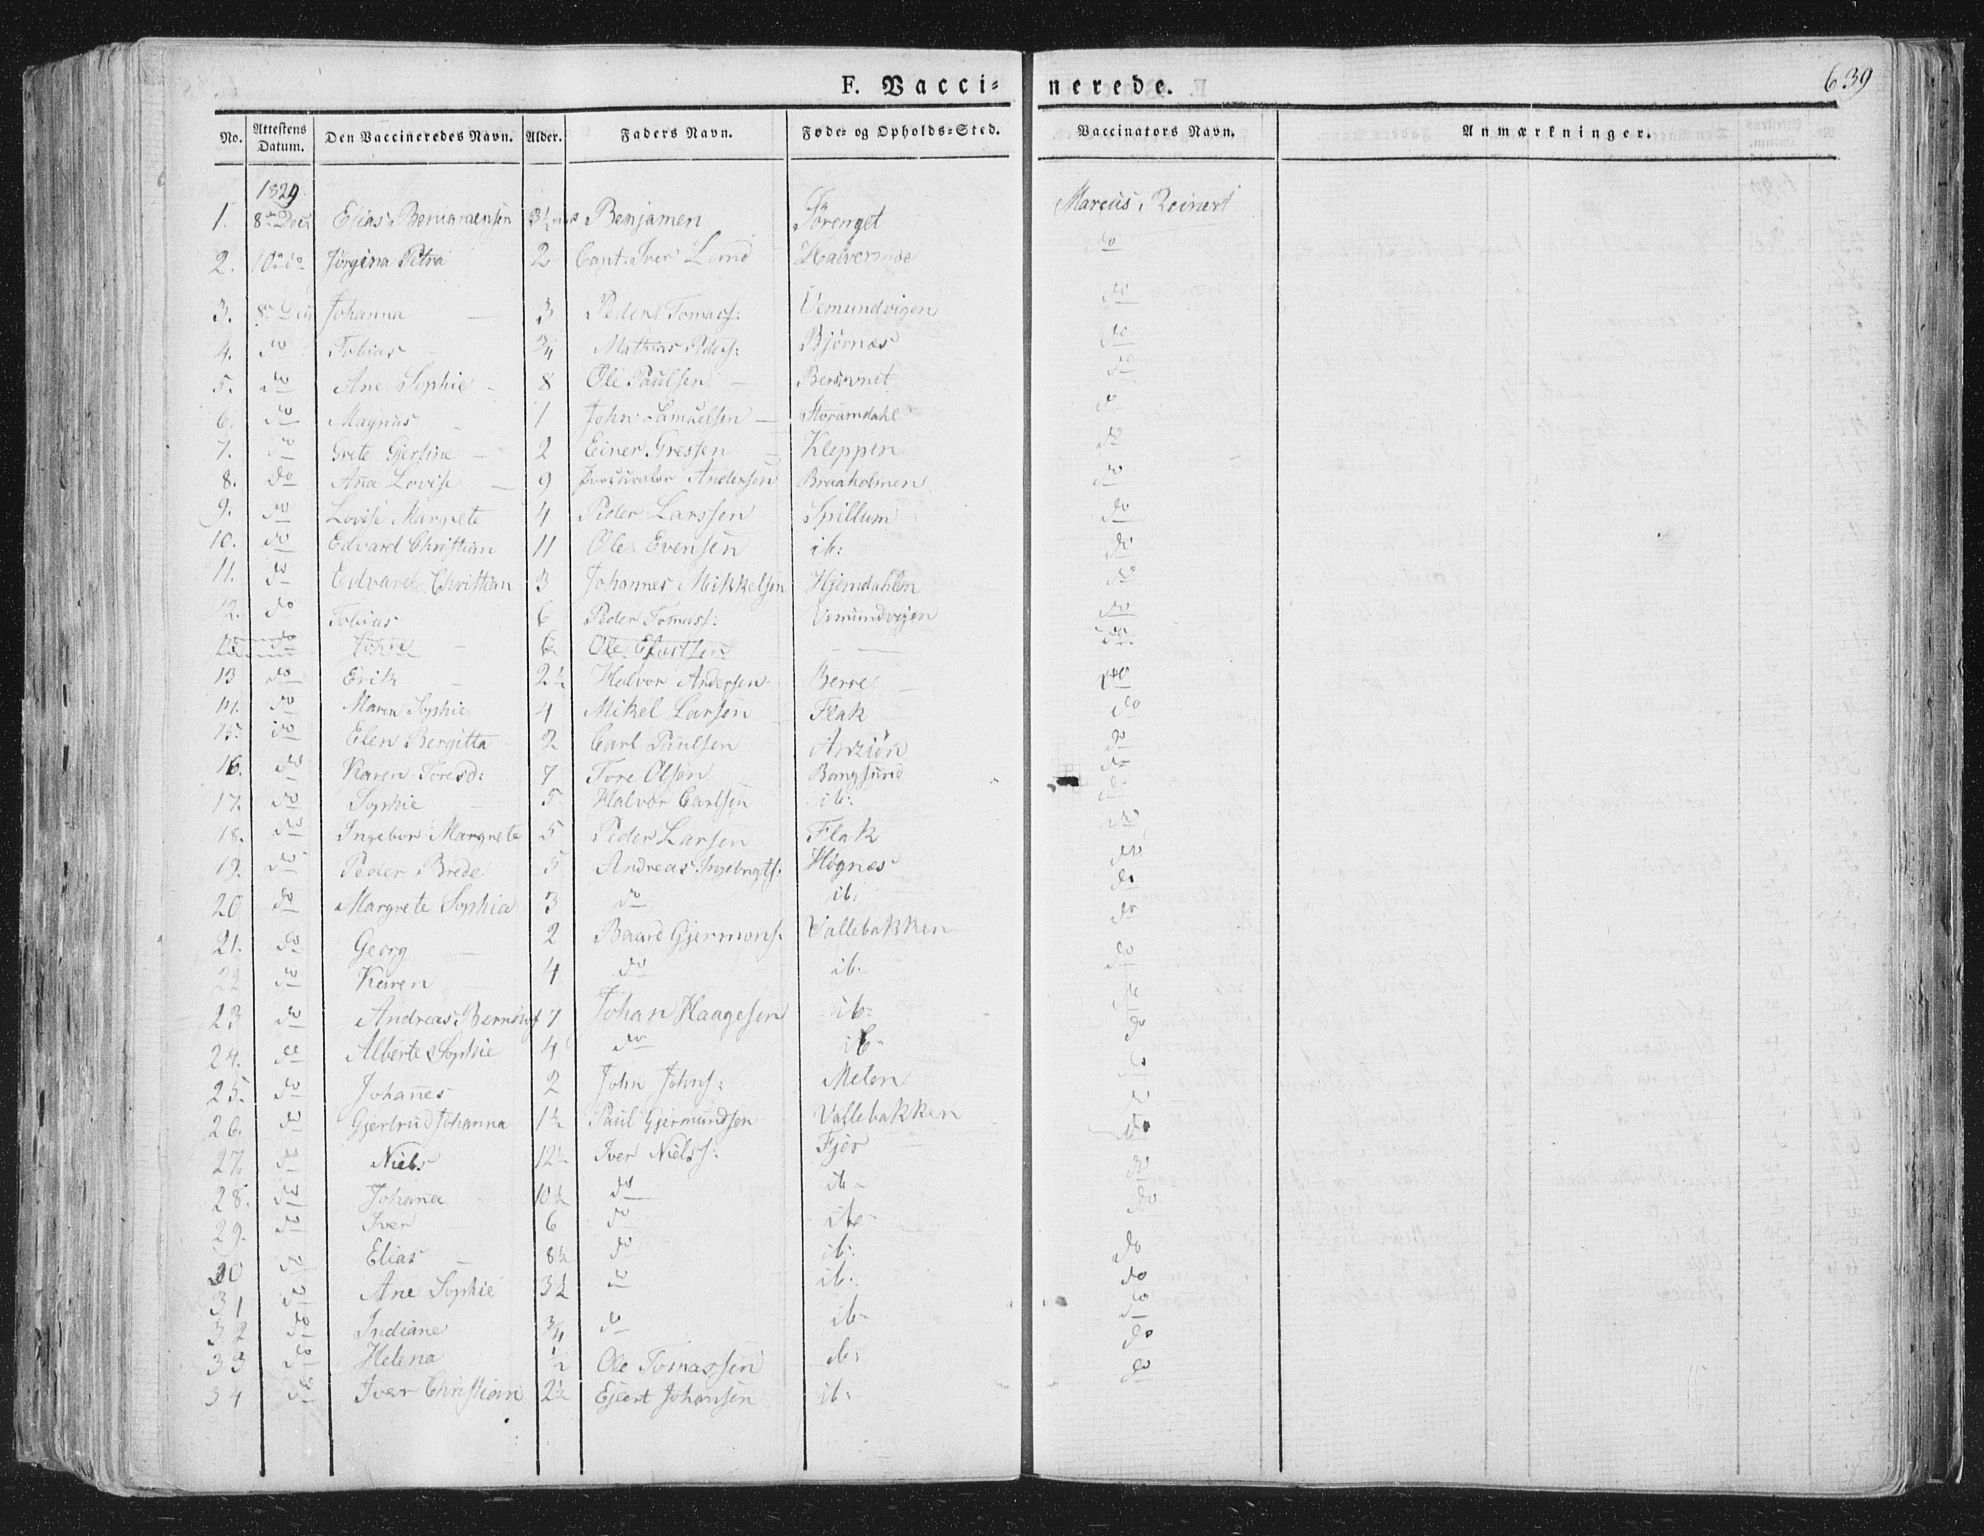 F. Vacci=
nerede.
639
No. Attestens Datum. Den Vaccineredes Navn. Alder. Faders Navn. Føde= og Opholds=Sted. Vaccinators Navn. Anmærkninger.
1829
1. 8de Decr Elias 3½ Benjamen Sörenget Marcus Reinert
2. 10de do Jörgina Petra 2 Capt. Iver Lund do
3. 8de Johanna 3 Peder Tomass: Vemundvigen do
4. do Tobias 3/4 Mathias Peders: Bjørnes do
5. do Ane Sophie 8 Ole Paulsen do
6. do Magnus 1 John Samuelsen do
7. do Grete Gjertine 2 Einer Gressen Kleppen do
8. do Ana Lovise 9 Procurator Andersen Braaholmen do
9. do Lovise Margrete 4 Peder Larssen Spillum do
10. do Edvard Christian 11 Ole Evensen ib: do
11. do Edvard Christian 3 Johannes Mikkelsen Hjemdahlen do
12. do Tobias 6 Peder Tomass: Vemundvigen do
do 6 Ole do
13 do Erik 2½ Halvor Andersen Berre do
14. do Maren Sophie 4 Mikel Larsen Flak do
15. do Elen Bergitta 2 Carl Paulsen do
16. do Karen Toresd: 7 Tore Olsen Bangsund do
17. do Sophie 5 Halvor Carlsen ib: do
18. do Ingebor Margrete 5 Peder Larsen Flak do
19. do Peder Brede 5 Andreas Ingebrigts: Högnes do
20 do Margrete Sophia 3 do ib: do
21. do Georg 2 Baard Gjermons: Vallebakken do
22 do Karen 4 do ib- do
23 do Andreas 7 Johan Haagesen ib: do
24. do Alberte Sophie 4 do ib- do
25. do Johanes 2 John Johns: Melen
26. do Gjertrud Johanna 1½ Paul Gjermundsen Vallebakken do
27. do Niels 12½ Iver Nielss: Fjer do
28. do Johana 10½ do ib- do
29. do Iver 6 do ib-
30 do Elias 8½ do ib: do
31 do Ane Sophie 3½ do ib: do
32 do Indiane 3/4 do ib- do
33 do Helena ½ Ole Tomassen ib: do
34 do Iver Christian 2½ Ejlert Johansen ib: do